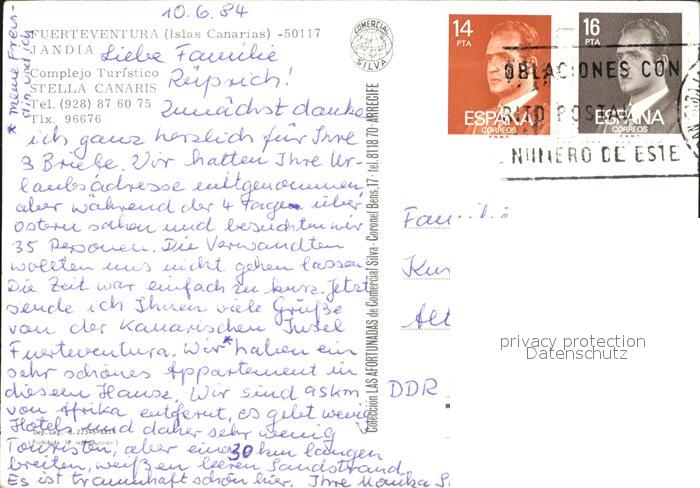 10.6.84
FUERTEVENTURA (Islas Canarias) -50117
JANDIA
Complejo Turístico
STELLA CANARIS
Tel. (928) 87 60 75
Tlx. 96676
* meine Freundin und ich
Liebe Familie
Reiprich!
Zunächst danke
ich ganz herzlich für Ihre
3 Briefe. Wir hatten Ihre Ur-
laubsadresse mitgenommen,
aber während der 4 Tage über
Ostern sahen und besuchten wir
35 Personen. Die Verwandten
wollten uns nicht gehen lassen.
Die Zeit war einfach zu kurz. Jetzt
sende ich Ihnen viele Grüße
von der Kanarischen Insel
Fuerteventura. Wir* haben ein
sehr schönes Appartement in
diesem Hause. Wir sind 95km
von Afrika entfernt, es gibt wenig
Hotels und daher sehr wenig
Touristen, aber einen 30 km langen
breiten, weißen leeren Sandstrand.
Es ist traumhaft schön hier. Ihre Monika
(Prohibida la reproducción)
COMERCIAL SILVA
Colección LAS AFORTUNADAS de Comercial Silva - Coronel Bens, 17 - tel. 811870 - ARRECIFE
14
PTA
ESPAÑA
CORREOS
F.N.M.T.
16
PTA
ESPAÑA
CORREOS
F.N.M.T.
OBLACIONES CON
RITO POSTAL
NUMERO DE ESTE
Fam
Kur
Alt
DDR
privacy protection
Datenschutz